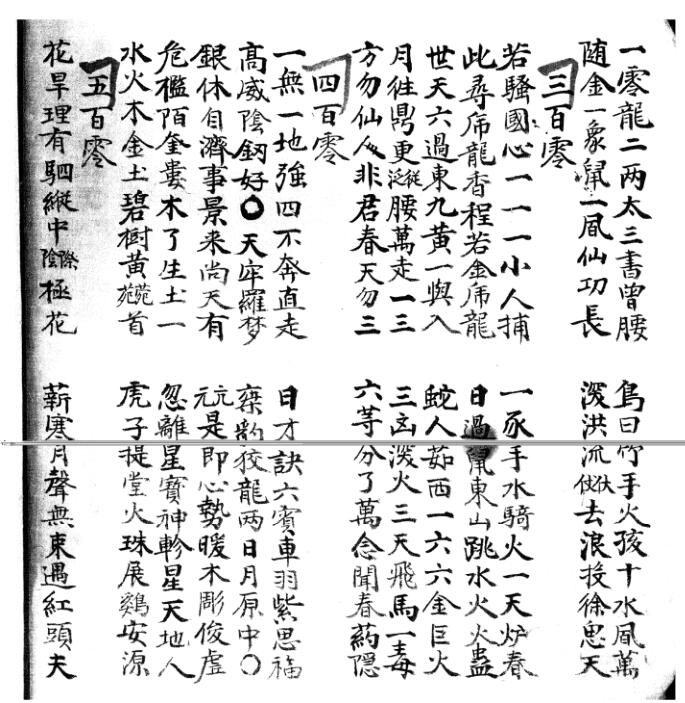 一零龍二两太三書曾腰 鳥曰竹手火孩十水凨萬
随金一象鼠一凨仙功長 泼洪流伏去浪投徐思天
三百零
若騷國心一一一小人捕 一豕手水騎火一天炉春
此尋席龍香程若金席龍 日過鼠東山跳水火火蠱
世天六過東九黄一與入 蛇人茹西一六六金巨火
月往鼎更泛從腰萬走一三 三凶泼火三天飛馬一毒
方勿仙人非君春天勿三 六等分了萬念聞春药隱
四百零
一無一地強四不奔直走 日才訣六賓車羽紫思福
高威陰釼好〇天牢羅梦 寐狡龍两日月原中〇
銀休自濟事景来尚天有 元是即心勢暖木彫俊虚
危檻陌奎婁木了生土一 忽離星寳神軫星天地人
水火木金土碧樹黄菀首 虎子提堂火珠展鷄安源
五百零
花旱理有駟縱中陰際極花 薪寒月聲無束遇紅頭夫